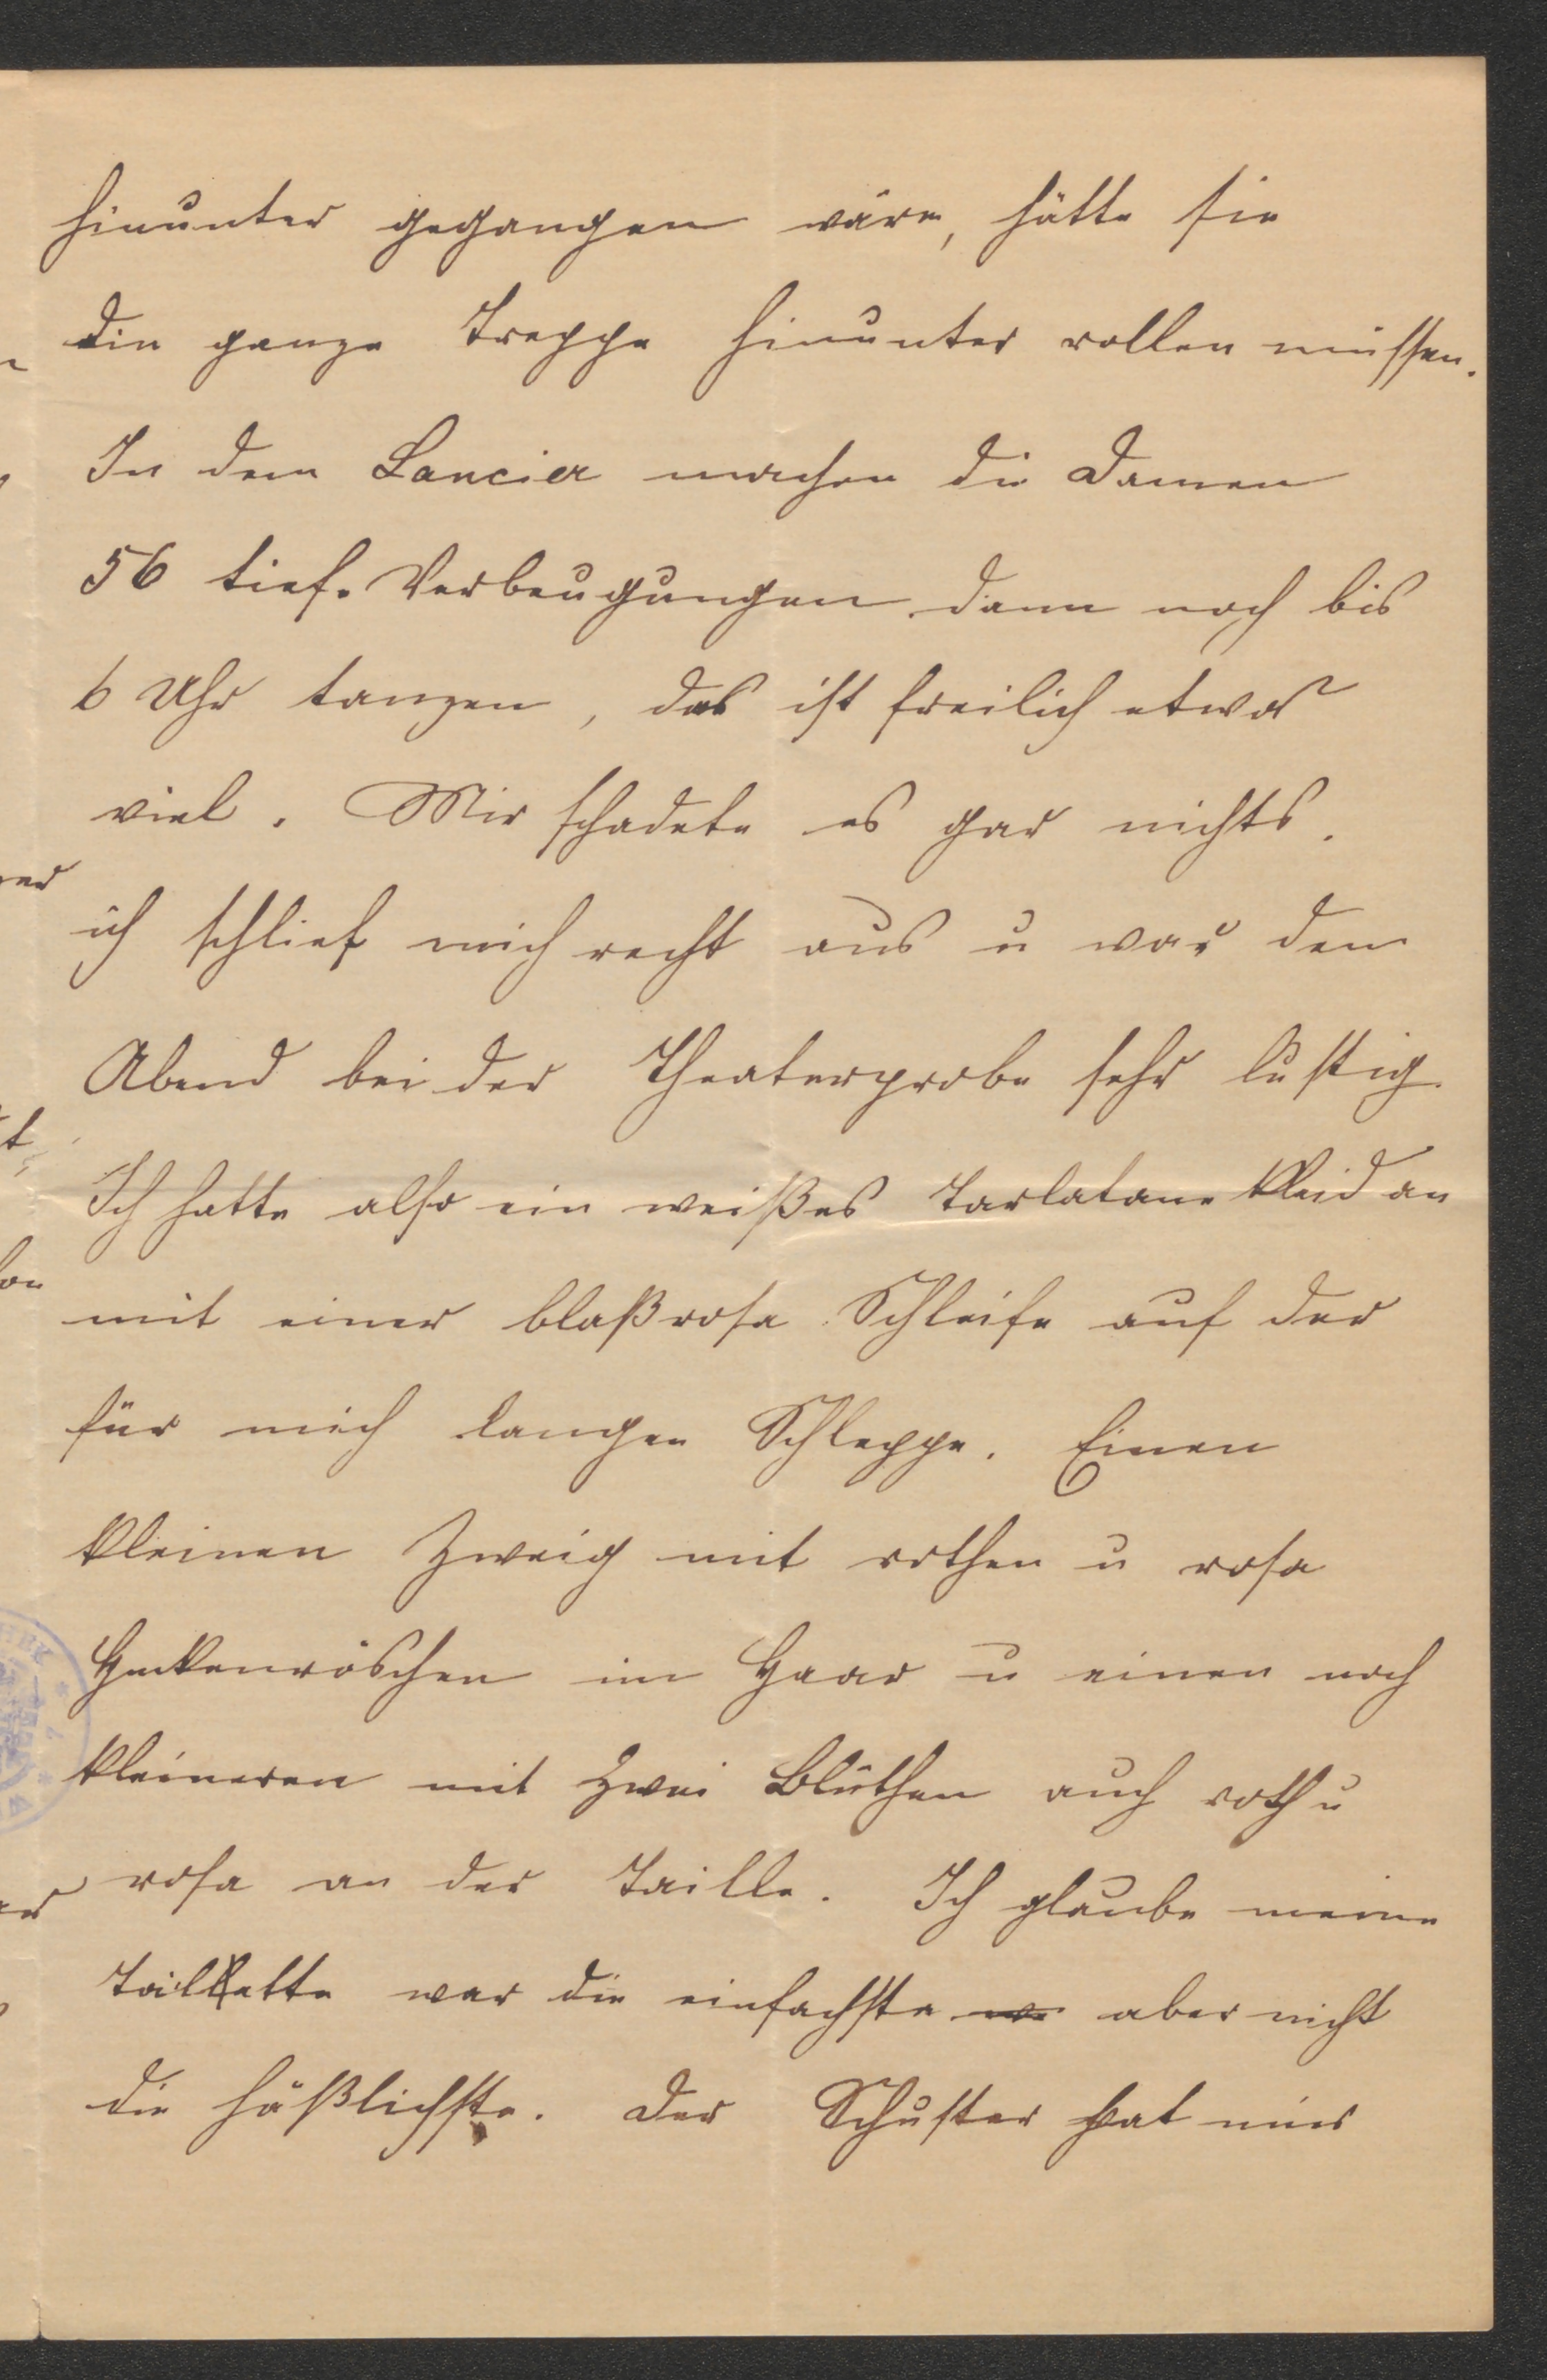 hinunter gegangen wäre, hätte sie
die ganze Treppe hinunter rollen müssen.
In dem Lancier machen die Damen
56 tief. Verbeugungen. dann noch bis
6 Uhr tanzen, das ist freilich etwas
viel. Mir schadete es gar nichts.
ich schlief mich recht aus u war den
Abend bei der Theaterprobe sehr lustig.
Ich hatte also ein weißes Tarlatane Kleid an
mit einer blaßrosa Schleife auf der
für mich langen Schleppe. Einen
kleinen Zweig mit rothen u rosa
Heckenröschen im Haar u einen noch
kleineren mit zwei Blüthen auch roth u
rosa an der Taille. Ich glaube meine
Toillette war die einfachste aber nicht
die häßlichste. Der Schuster hat mir